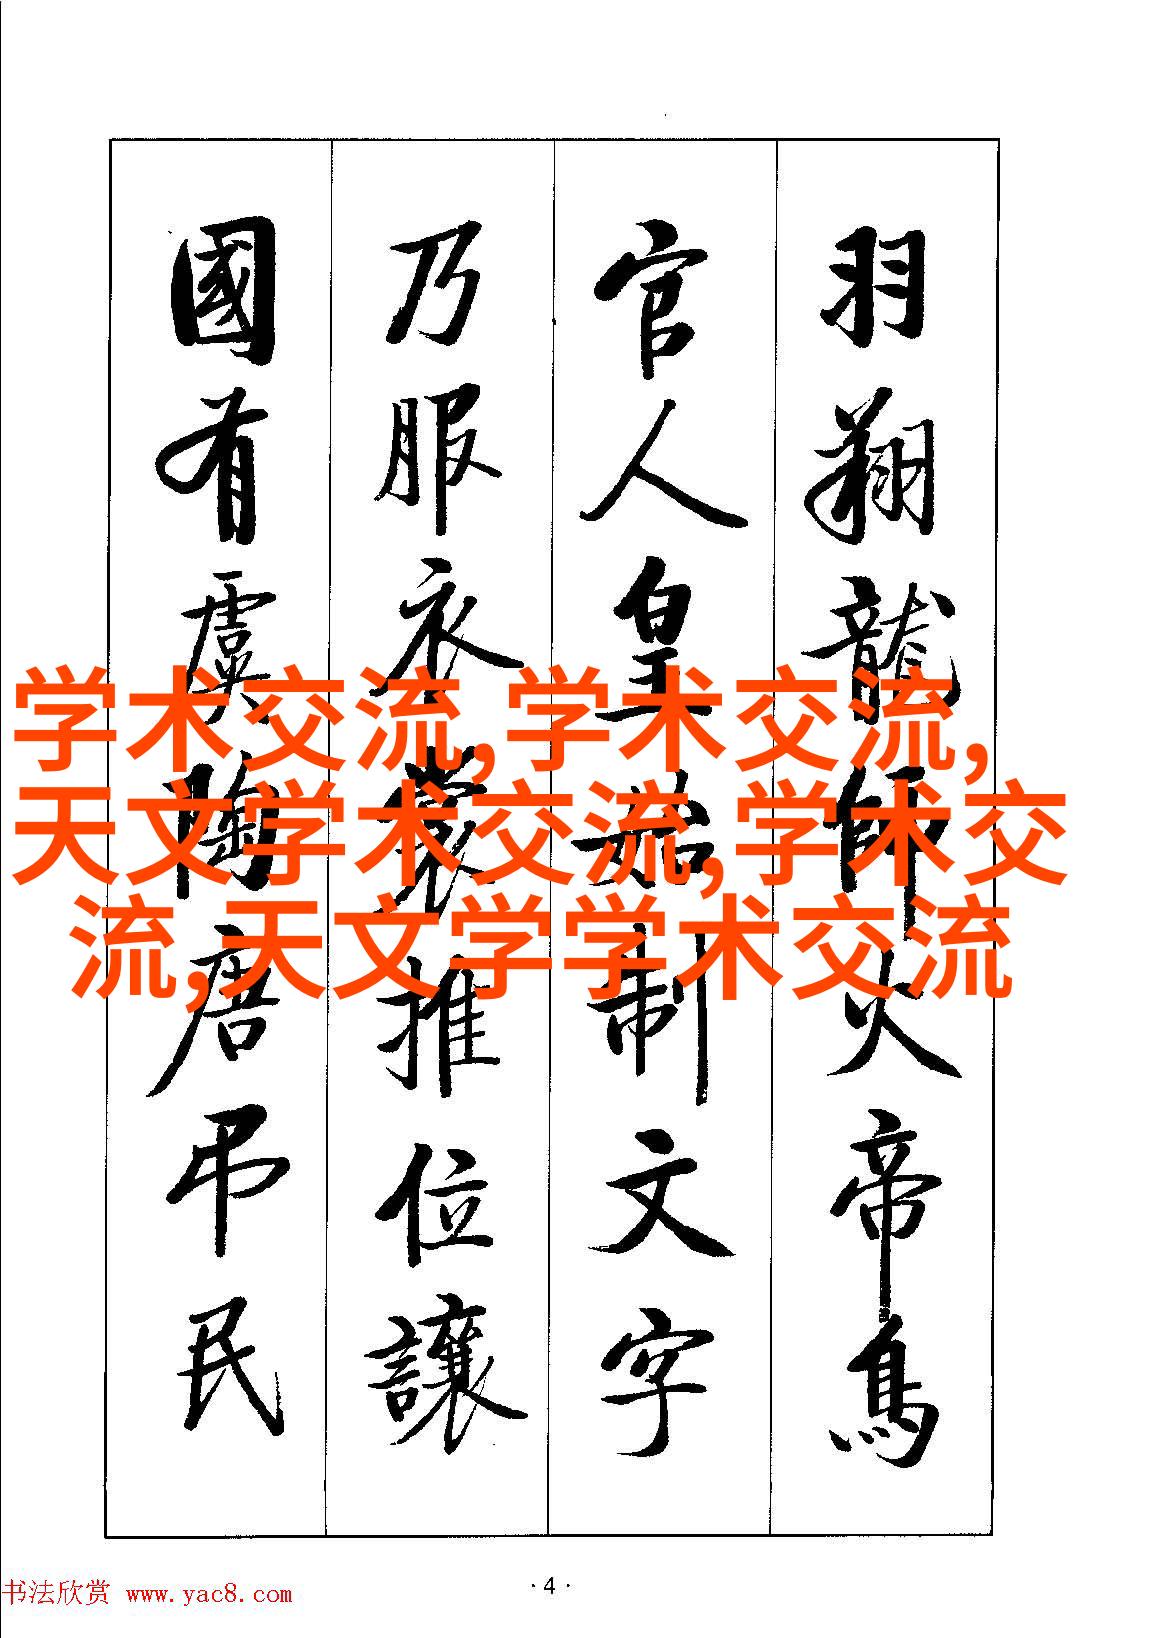 羽翔龍師火帝鳥
官人皇始制文字
乃服衣裳推位讓
國有虞陶唐弔民
学术交流,学术交流,
天文学术交流,学术交
流,天文学学术交流
·4·
书法欣赏 www.yac8.com